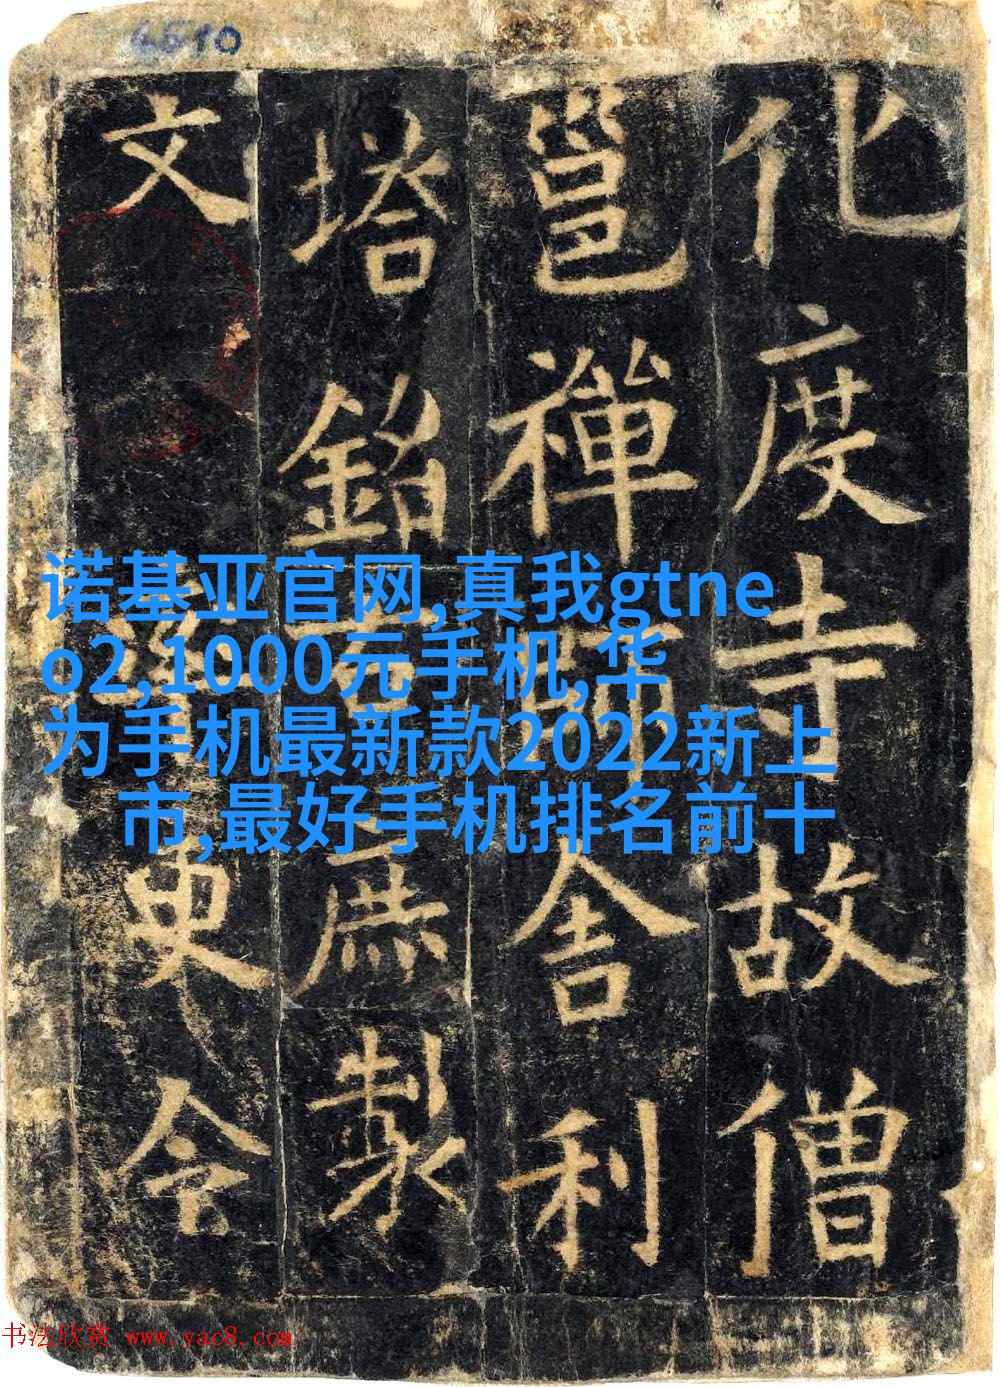 化度寺故僧
邕禪師舍利
塔銘右庶製
文率更令
诺基亚官网,真我gtne
o2,1000元手机,华
为手机最新款2022新上
市,最好手机排名前十
书法欣赏 www.yac8.com